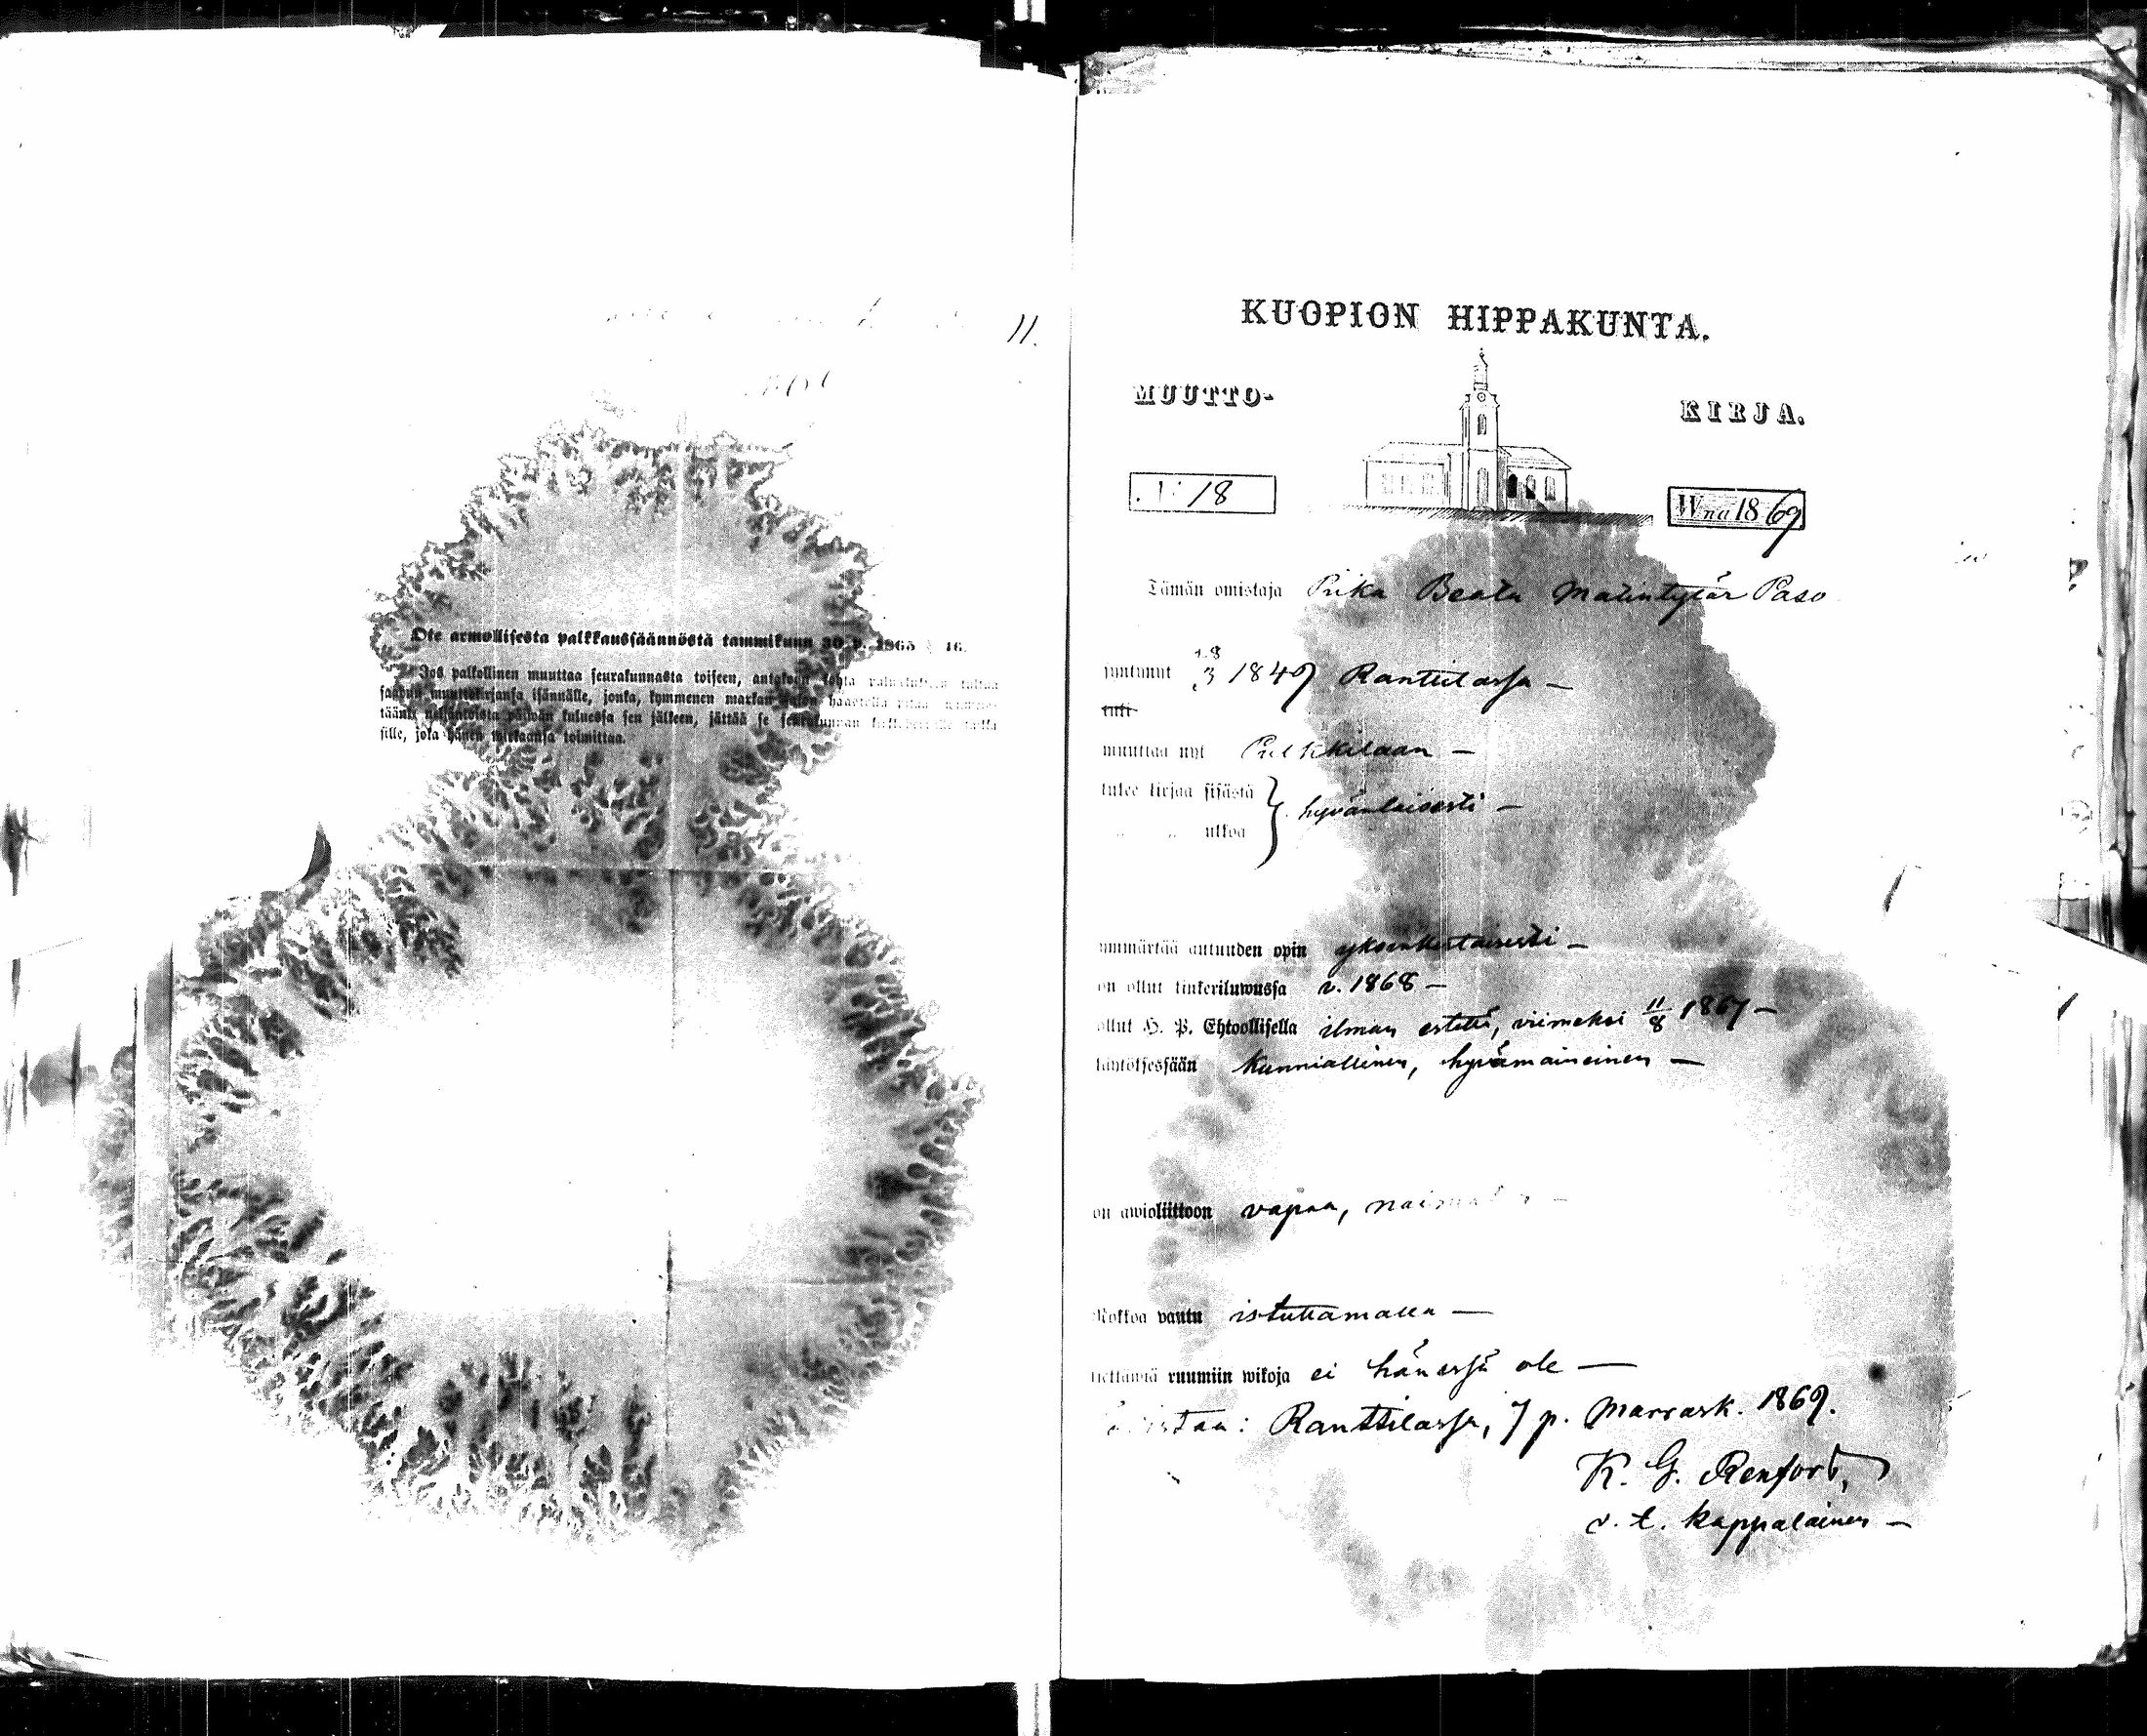 11.
Ote armollisesta palkkaussäännöstä tammikuun 30 p. 1865 § 16.
Jos palkollinen muuttaa seurakunnasta toiseen, antakoon kohta
saadun muuttokirjansa isännälle, jonka, kymmenen markan haastolla
täänki neljäntoista päiwän kuluessa sen jälkeen, jättää se seurakunnan
sille, joka hänen wirkaansa toimittaa.
KUOPION HIPPAKUNTA.
MUUTTO- KIRJA.
N: 18
Wna 1869
Tämän omistaja Prika Beata Matintytär Paso
syntynyt 18/3 1849 Rantsilassa —
tuli
muuttaa nyt Pulkkilaan —
lukee kirjaa sisästä } hyvänlaisesti —
„ „ ulkoa
ymmärtää autuuden opin yksinkertaisesti —
on ollut kinkeriluwussa v. 1868 —
ollut H. P. Ehtoollisella ilman estettä, viimeksi 11/8 1867 —
käytöksessään kunniallinen, hyvämaineinen —
on awioliittoon vapaa,
Rokkoa pantu istuttamalla —
tiettäwiä ruumiin wikoja ei hänessä ole —
Rantsilassa, 7 p. Marrask. 1869.
K. G. Renfors,
v. t. Kappalainen —